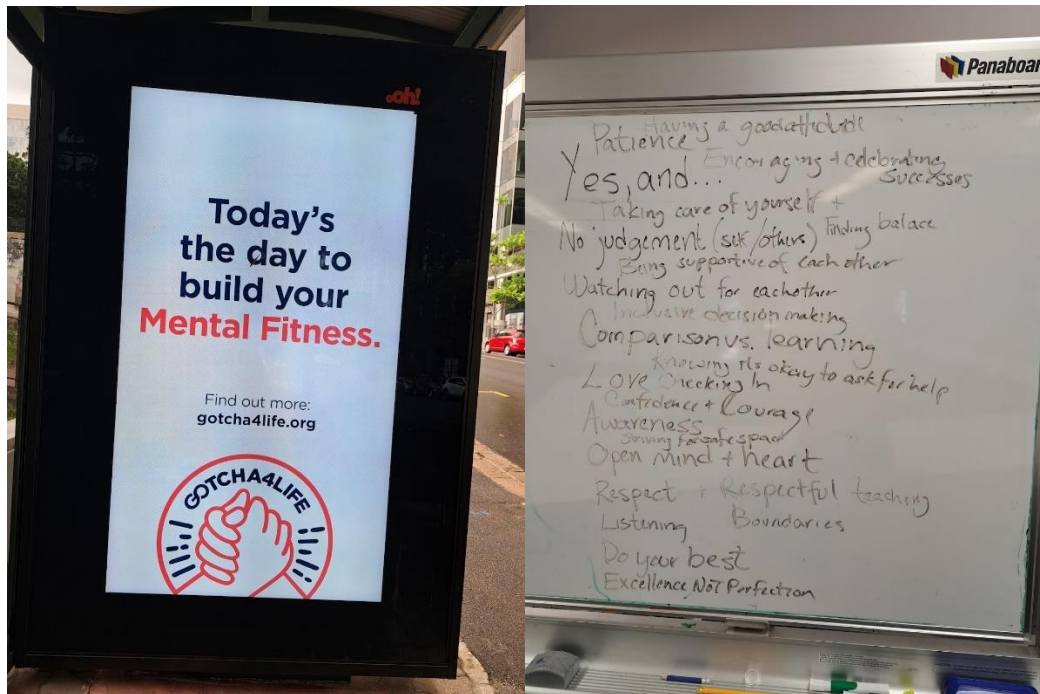 oh!
Today's
the day to
build your
Mental Fitness.
Find out more:
gotcha4life.org
GOTCHA4LIFE
Panaboar
Having a good attidude
Patience
Encouraging + celebrating
Successes
Yes, and...
Taking care of yourself +
Finding balace
No judgement (self/others)
Being supportive of each other
Watching out for eachother
Inclusive decision making
Comparison vs. learning
Knowing its okay to ask for help
Love Checking In
Confidence + Courage
Awareness
Striving for safe space
Open mind + heart
Respect + Respectful teaching
Listening Boundaries
Do your best
Excellence NOT Perfection